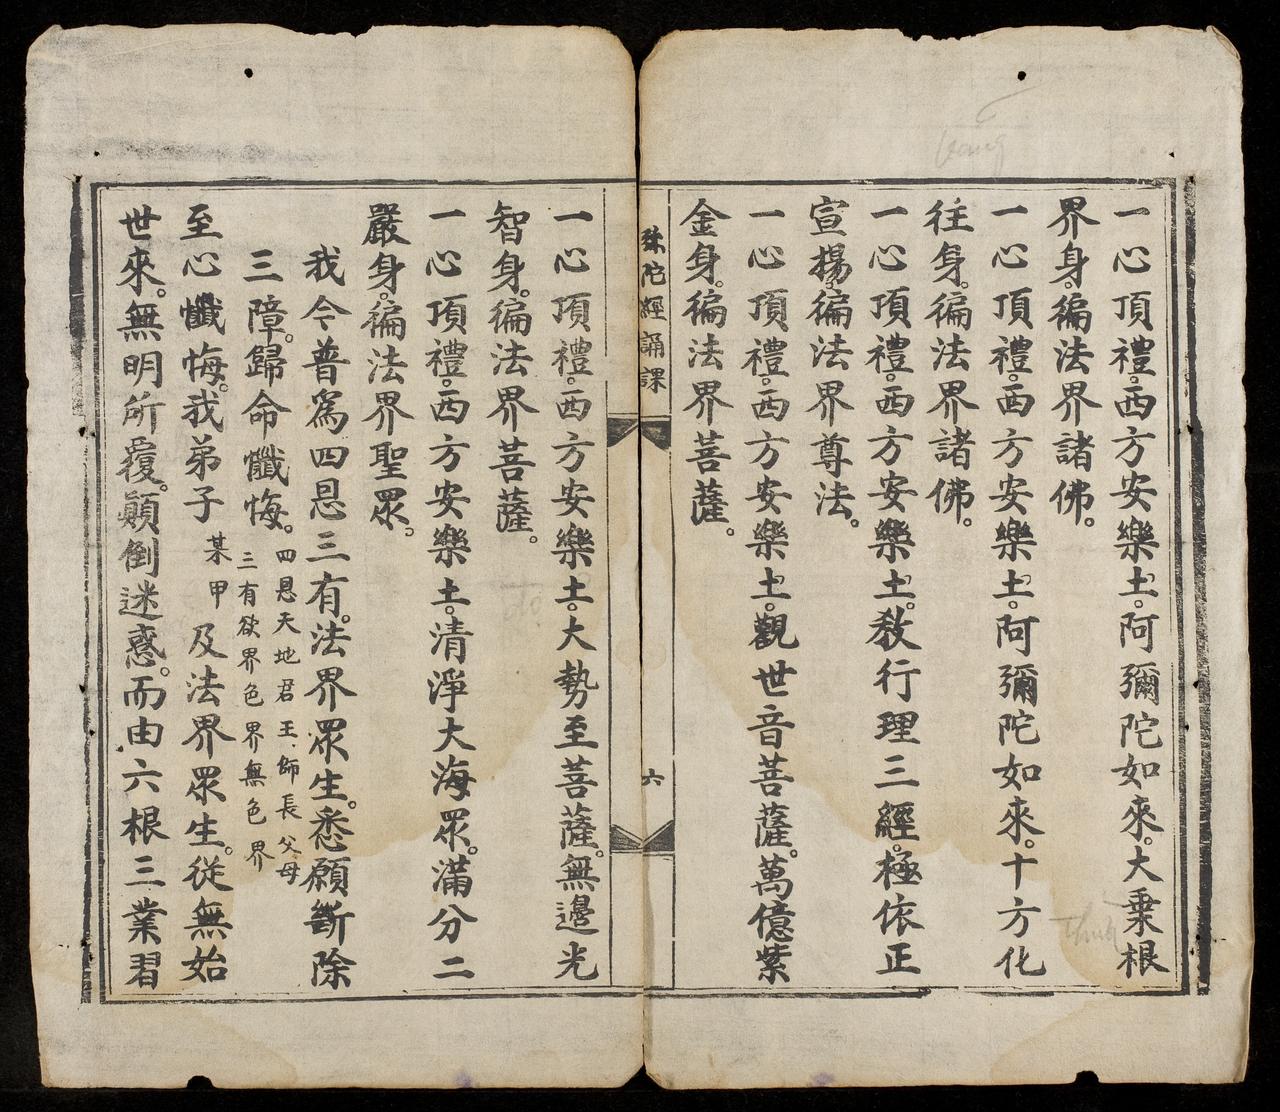 一心頂禮。西方安樂土。阿彌陀如來。大乗根
界身。徧法界諸佛。
一心頂禮。西方安樂土。阿彌陀如來。十方化
往身。徧法界諸佛。
一心頂禮。西方安樂土。教行理三經。極依正
宣揚。徧法界尊法。
一心頂禮。西方安樂土。觀世音菩薩。萬億紫
金身。徧法界菩薩。
弥陀經誦課
六
一心頂禮。西方安樂土。大勢至菩薩。無邊光
智身。徧法界菩薩。
一心頂禮。西方安樂土。清淨大海眾。滿分二
嚴身。徧法界聖眾。
我今普爲四恩三有。法界眾生。悉願斷除
三障。歸命懺悔。
四恩天地君王師長父母
三有欲界色界無色界
至心懺悔。我弟子某甲及法界眾生。從無始
世來。無明所覆。顛倒迷惑。而由六根三業習